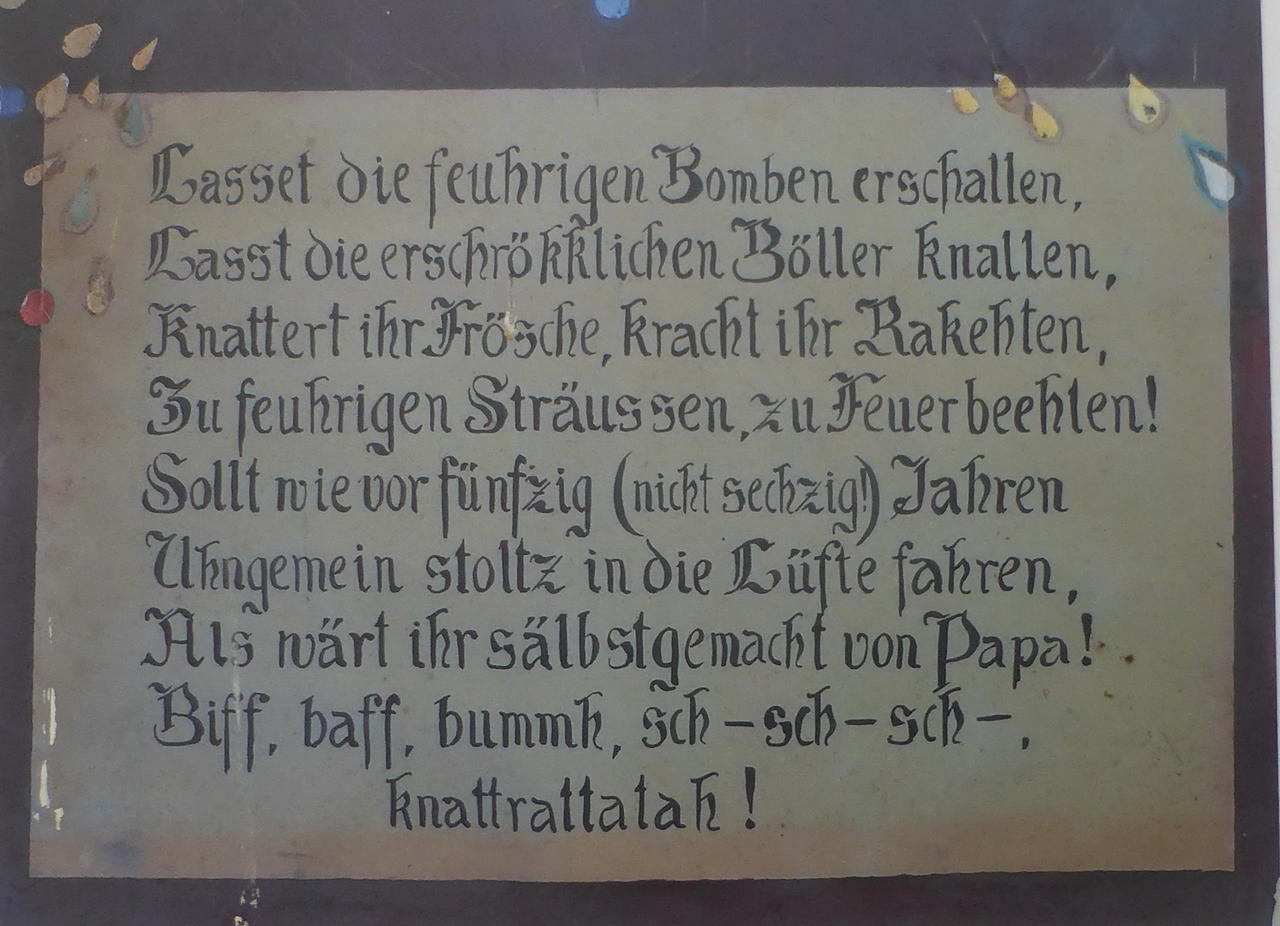 Lasset die feuhrigen Bomben erschallen,
Lasst die erschrökklichen Böller knallen,
Knattert ihr Frösche, kracht ihr Rakehten,
Zu feuhrigen Sträussen, zu Feuerbeehten!
Sollt wie vor fünfzig (nicht sechzig!) Jahren
Uhngemein stoltz in die Lüfte fahren,
Als wärt ihr sälbstgemacht von Papa!
Biff, baff, bummh, sch – sch – sch –,
knattrattatah!